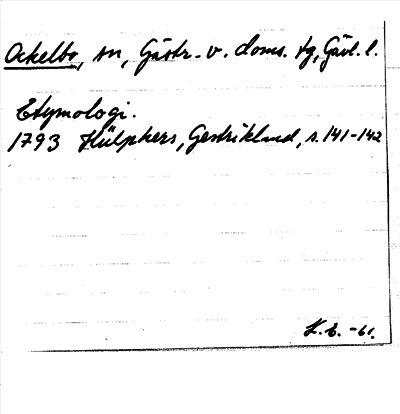 Ockelbo, sn, Gästr. v. doms. tg, Gävl. l.
Etymologi.
1793 Hülphers, Gestrikland, s. 141-142
K. E. -61.